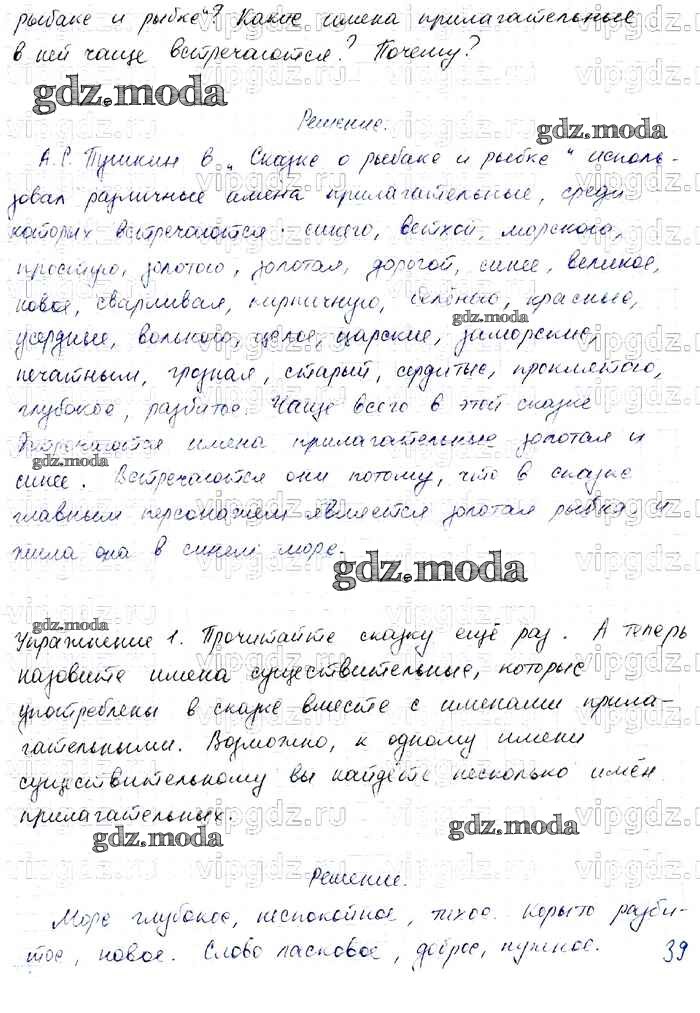 рыбаке и рыбке"? Какие имена прилагательные
в ней чаще встречаются? Почему?
gdz.moda
Решение.
gdz.moda
А.С. Пушкин в „Сказке о рыбаке и рыбке" исполь-
зовал различные имена прилагательные, среди
которых встречаются: синего, ветхой, морского,
простую, золотою, золотая, дорогой, синее, великое,
новое, сварливая, кирпичную, белёною, красные,
gdz.moda
усердные, вольного, целое, царские, заморские,
печатным, грозная, старый, сердитые, проклятою,
глубокое, разбитое. Чаще всего в этой сказке
встречаются имена прилагательные золотая и
gdz.moda
синее. Встречаются они потому, что в сказке
главным персонажем является золотая рыбка и
жила она в синем море.
gdz.moda
gdz.moda
Упражнение 1. Прочитайте сказку ещё раз. А теперь
назовите имена существительные, которые
употреблены в сказке вместе с именами прила-
гательными. Возможно, к одному имени
существительному вы найдёте несколько имён
прилагательных.
gdz.moda
gdz.moda
Решение.
Море глубокое, неспокойное, тихое. Корыто разби-
тое, новое. Слово ласковое, доброе, нужное.
39